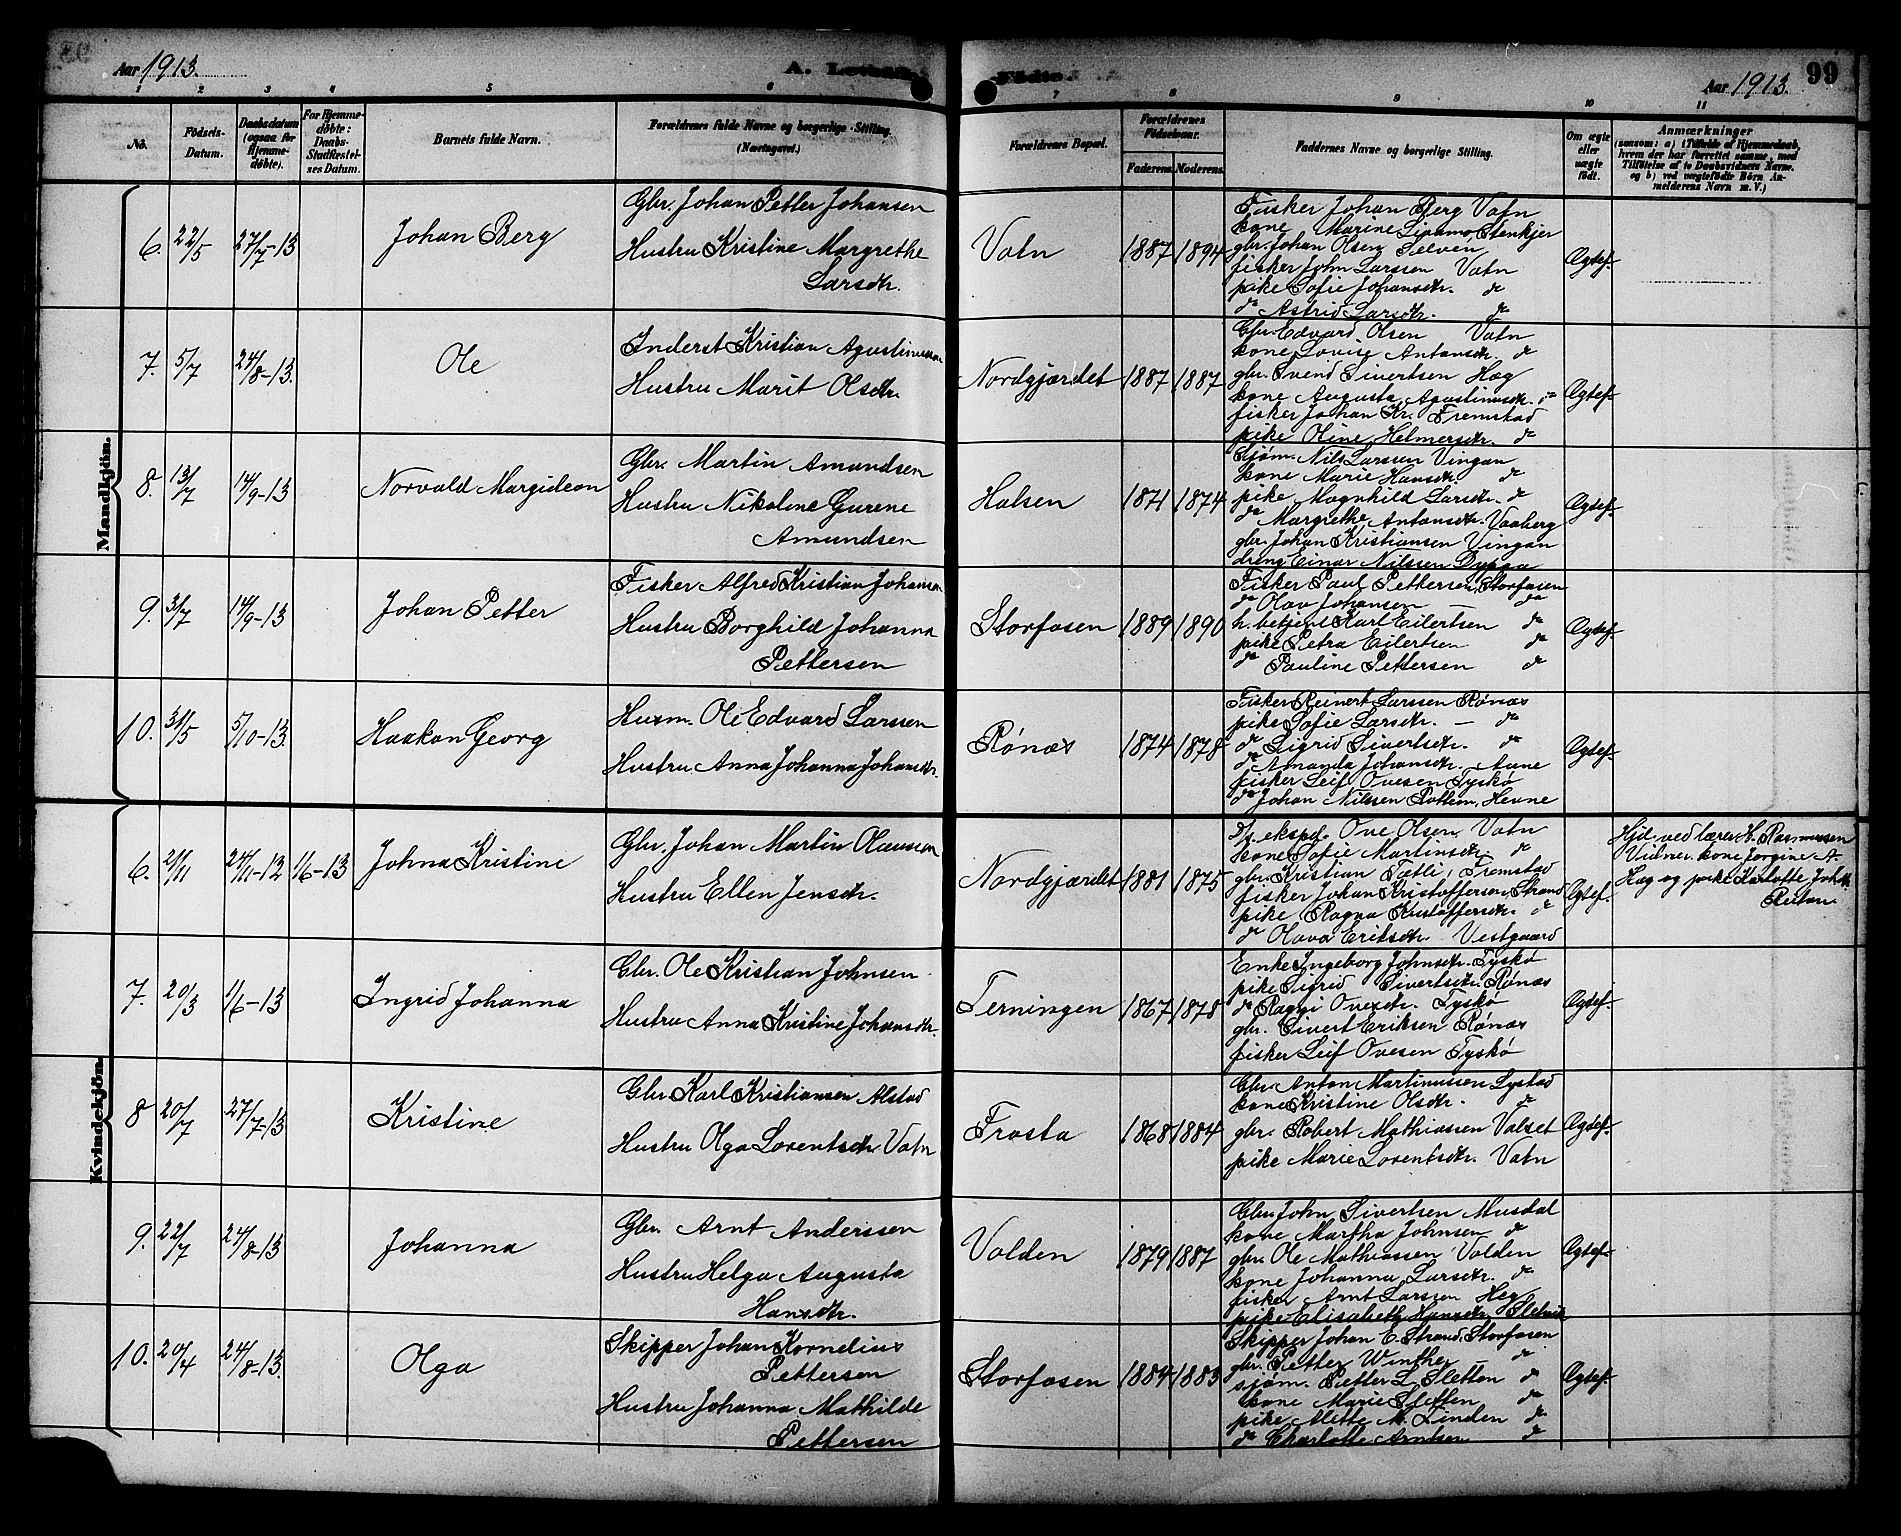 Aar 1913.
A. Levende
Födte
Aar 1913.
99
1 2 3 4 5 6 7 8 9 10 11
No.
Födsels-
Datum.
Daabsdatum
(ogsaa for
Hjemme-
döbte).
For Hjemme-
döbte:
Daabs-
Stadfæstel-
ses Datum.
Barnets fulde Navn.
Forældrenes fulde Navne og borgerlige Stilling.
(Næringsvei.)
Forældrenes Bopæl.
Forældrenes
Födselsaar.
Faderens. Moderens.
Faddernes Navne og borgerlige Stilling.
Om ægte
eller
uægte
födt.
Anmærkninger
(saasom: a) i Tilfælde af Hjemmedaab,
hvem der har forrettet samme, med
Tilföielse af to Daabsvidners Navne,
og b) ved uægtefödte Börn An-
melderens Navn m. V.)
Mandkjön.
6. 22/5 27/7-13
Johan Berg
Gbr. Johan Petter Johansen
Hustru Kristine Margrethe
Larsdtr.
Vatn
1887 1894
Fisker Johan Berg Vatn
kone Marine Stenkjer
gbr. Johan Olsen Selven
fisker John Larssen Vatn
pike Sofie Johansdtr. do
do Astrid Larsdtr. do
Ægtef.
7. 5/7 24/8-13.
Ole
Inderst Kristian Agustinussen
Hustru Marit Olsdtr.
Nordgjærdet
1887 1887
Gbr. Edvard Olsen Vatn
kone Lovise Antonsdtr. do
gbr. Svend Sivertsen Hæg
kone Augusta Agustinusdtr. do
fisker Johan Kr. Fremstad
pike Oline Helmersdtr. do
Ægtef.
8. 13/7 14/9-13
Norvald Margideon
Gbr. Martin Amundsen
Hustru Nikoline Gurene
Amundsen
Halsen
1871 1874
Sjøm. Nils Larssen Vingan
kone Marie Hansdtr. do
pike Magnhild Larsdtr. do
do Margrethe Antonsdtr. Vaaberg
gbr. Johan Kristiansen Vingan
dreng Einar Nilssen
Ægtef.
9. 3/7 14/9-13
Johan Petter
Fisker Alfred Kristian Johansen
Hustru Borghild Johanna
Pettersen
Storfosen
1889 1890
Fisker Paul Pettersen, Storfosen
do Olav Johansen — do
h. betjent Karl Eilertsen do
pike Petra Eilertsen do
do Pauline Pettersen do
Ægtef.
10. 31/5 5/10-13.
Haakon Georg
Husm. Ole Edvard Larssen
Hustru Anna Johanna Johansdtr.
Rønæs
1874 1878
Fisker Reinert Larssen Rønæs
pike Sofie Larsdtr. — do
do Sigrid Sivertsdtr. do
do Amanda Johansdtr. Aune
fisker Leif Ovesen Tyskø
do Johan Nilssen Rottem, Hevne
Ægtef.
Kvindekjön.
6. 21/11 24/11-12 1/6-13
Johna Kristine
Gbr. Johan Martin Olaussen
Hustru Ellen Jensdtr.
Nordgjærdet
1881 1875
Dp. ekspd. Ove Olsen Vatn
kone Sofie Martinsdtr. do
gbr. Kristian Fætli, Fremstad
fisker Johan Kristoffersen, Strand
pike Ragna Kristoffersdtr. do
do Olava Eriksdtr. Vestgaard
Ægtef.
Hjd. ved lærer K. Rasmussen
Vidner. kone Jorgine A.
Hæg og pike Karlotte Joh.dtr.
7. 20/3 1/6-13
Ingrid Johanna
Gbr. Ole Kristian Johnsen
Hustru Anna Kristine Johansdtr.
Terningen
1867 1878
Enke Ingeborg Johnsdtr. Tyskø
pike Sigrid Sivertsdtr. Rønæs
do Ragni Ovesdtr. Tyskø
gbr. Sivert Eriksen Rønæs
fisker Leif Ovesen Tyskø
Ægtef.
8 20/7 27/7-13
Kristine
Gbr. Karl Kristiansen Alstad
Hustru Olga Lorentsdtr. Vatn
Frosta
1868 1884
Gbr. Anton Martinussen Lystad
kone Kristine Olsdtr. do
gbr. Robert Mathiassen Valset
pike Marie Lorentsdtr. Vatn
Ægtef.
9. 22/7 24/8-13
Johanna
Gbr. Arnt Anderssen
Hustru Helga Augusta
Hansdtr.
Volden
1879 1887
Gbr. John Sivertsen Musdal
kone Martha Johnsen do
gbr. Ole Mathiassen Volden
kone Johanna Larsdtr. do
fisker Arnt Larssen Heg
pike Elisabeth Hansdtr. Sletvik
Ægtef.
10. 20/4 24/8-13.
Olga
Skipper Johan Kornelius
Pettersen
Hustru Johanna Mathilde
Pettersen
Storfosen
1884 1883
Skipper Johan E. Strand, Storfosen
gbr. Petter Winther — do
sjøm. Petter L. Sletten do
kone Marie Sletten do
pike Alette M. Linden do
do Charlotte Arntsen do
Ægtef.